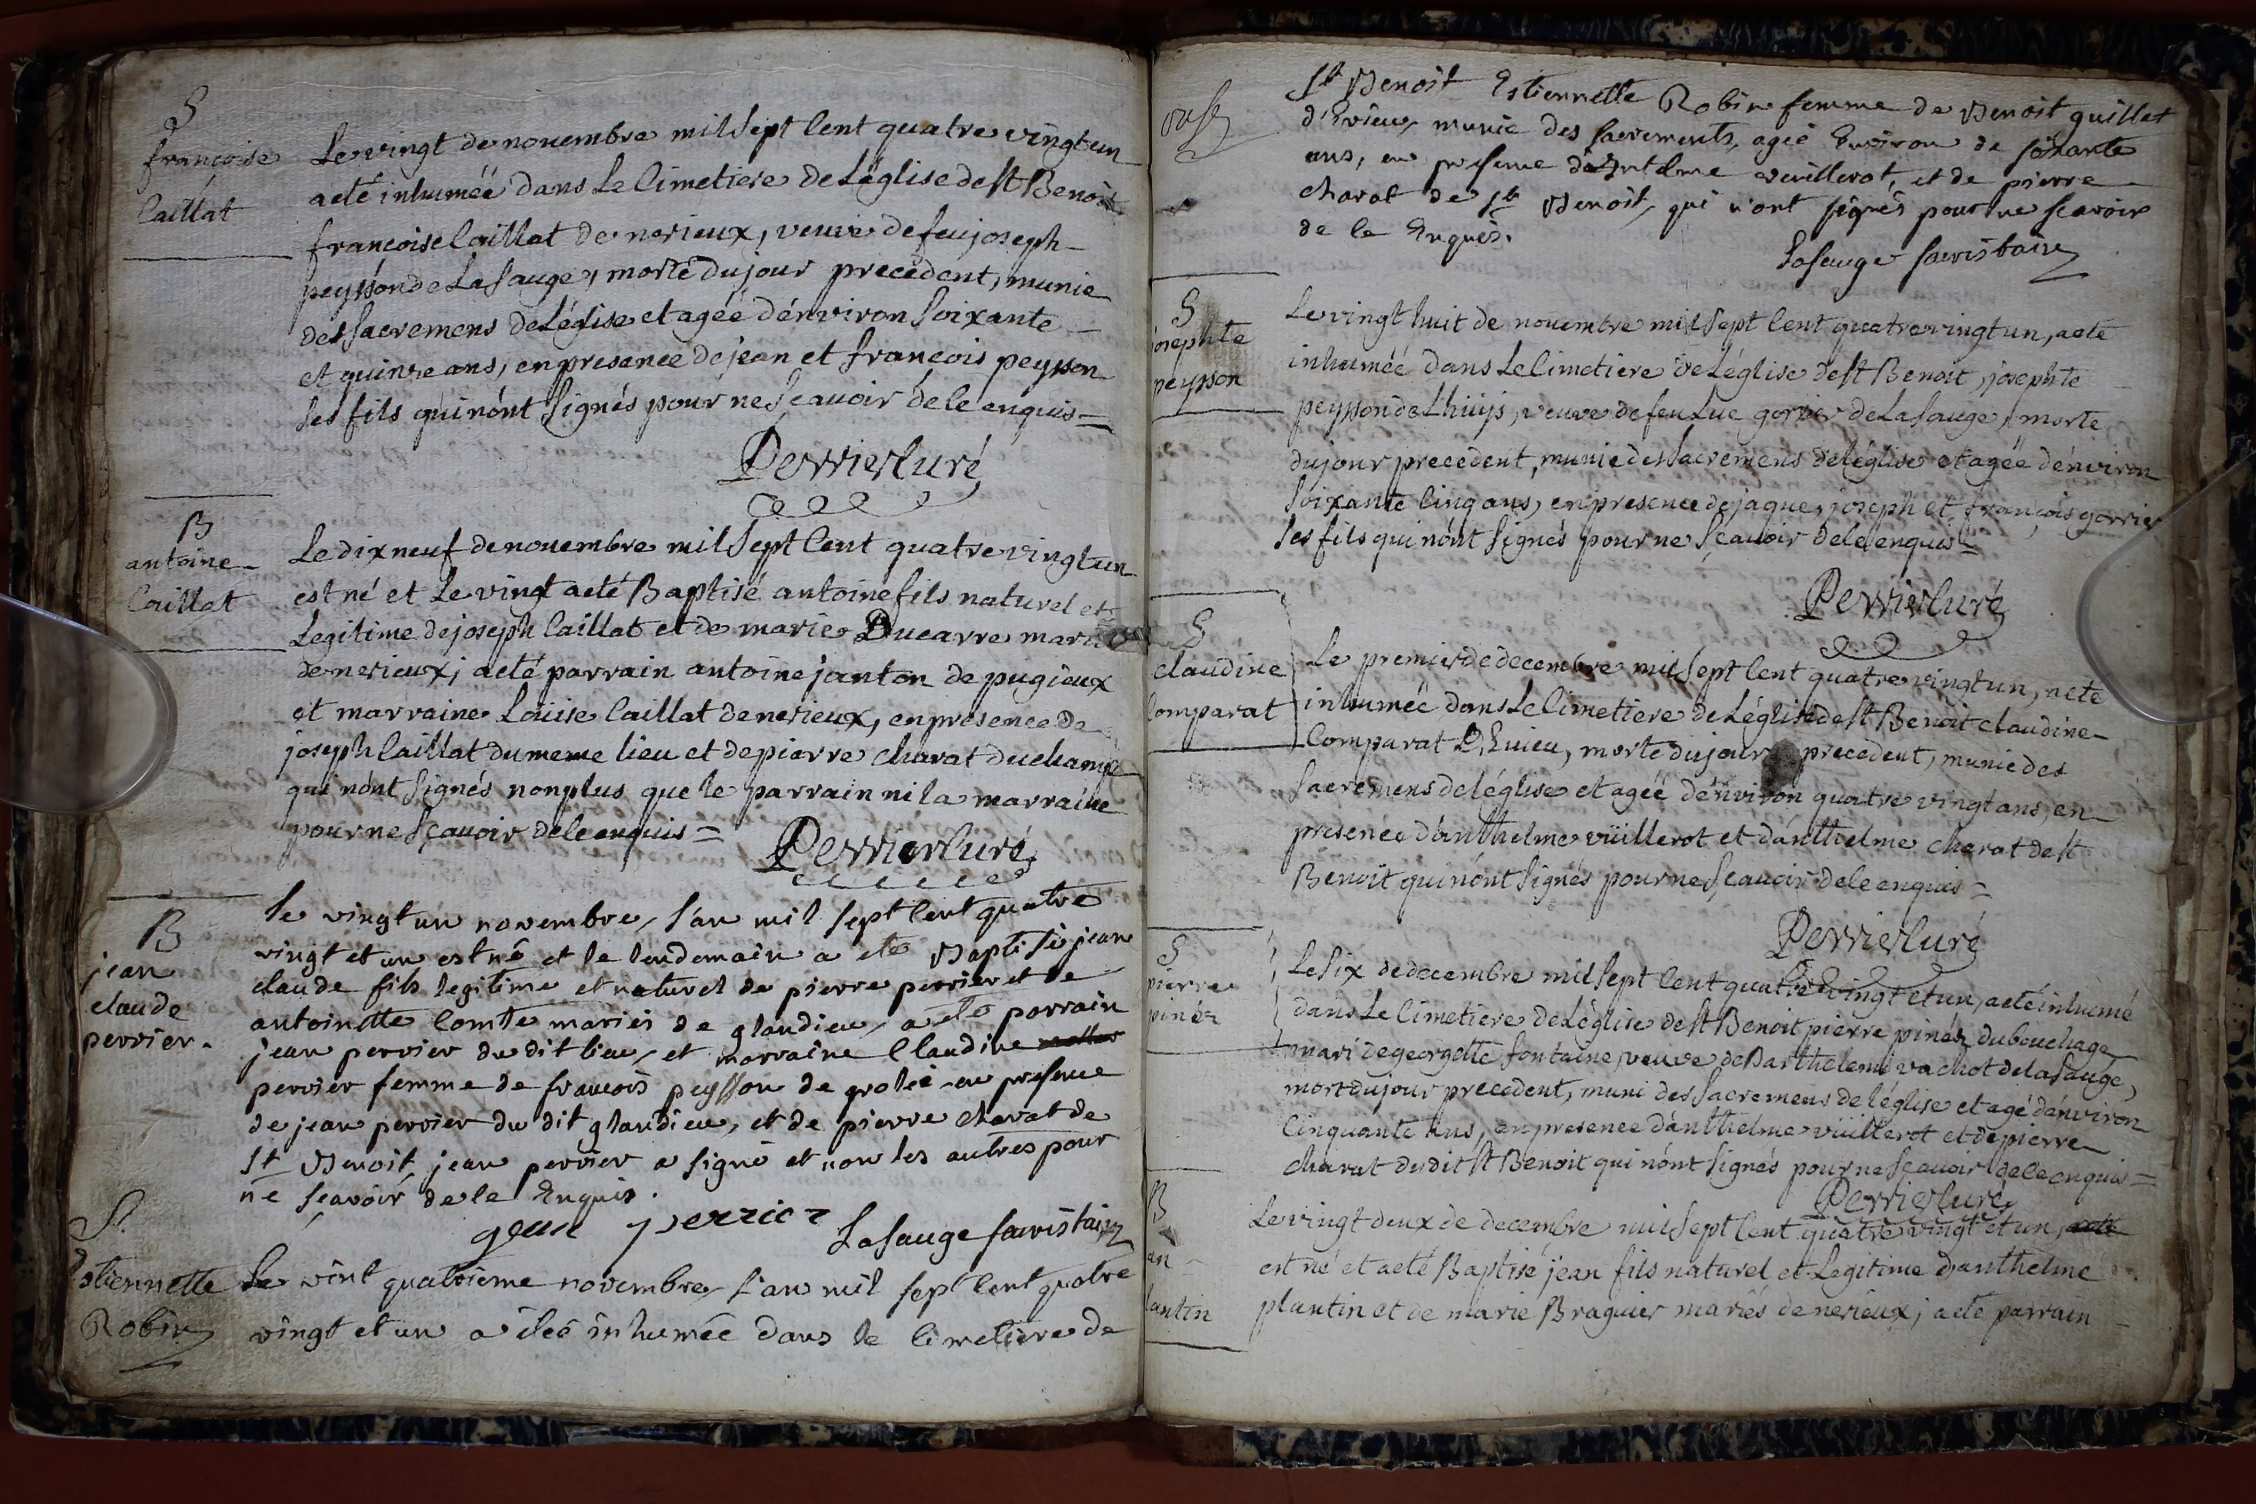 S
françoise
Caillat
Le vingt de novembre mil sept cent quatre vingt un
a eté inhumée dans Le Cimetiere de L'église de st Benoit
françoise Caillat de nerieux, veuve de feu joseph
peysson de La sauge, morte du jour precedent, munie
des sacremens de L'église et agée d'environ soixante
et quinze ans, en presence de jean et françois peysson
ses fils qui n'ont signés pour ne sçavoir de ce enquis =
Perrier Curé
B
antoine
Caillat
Le dix neuf de novembre mil sept Cent quatre vingt un
est né et Le vingt a eté Baptisé antoine fils naturel et
Legitime de joseph Caillat et de marie Ducarre mariés
de nerieux; a eté parrain antoine janton de pugieux
et marraine Loüise Caillat de nerieux, en presence de
joseph Caillat du meme lieu et de pierre charat du champ
qui n'ont signés non plus que le parrain ni la marraine
pour ne sçavoir de ce enquis =
Perrier Curé
B
jean
claude
perrier.
Le vingt un novembre, l'an mil sept Cent quatre
vingt et un est né et le lendemain a eté Baptisé jean
claude fils legitime et naturel de pierre perrier et de
antoinette Comte mariés de glandieu, a eté parrain
jean perrier du dit lieu, et marraine Claudine
perrier femme de francois peysson de grolée en presence
de jean perrier du dit glandieu, et de pierre charat de
st Benoit, jean perrier a signé et non les autres pour
ne sçavoir de ce Enquis.
jean perrier
Lasauge sacristain
S.
Estiennette
Robin
Le vint quatrieme novembre, l'an mil sept Cent quatre
vingt et un a étéé inhumée dans le Cimetiere de
st Benoit Estiennette Robin femme de Benoit quillet
d'Evieu, munie des sacrements, agée Environ de soixante
ans, en presence d'Antelme vuillerot, et de pierre
charat de st Benoit, qui n'ont signés pour ne scavoir
de ce Enquis.
Lasauge sacristain
S
josephte
peysson
Le vingt huit de novembre mil sept Cent quatre vingt un, a eté
inhumée dans Le Cimetiere de L'église de st Benoit, josephte
peysson de Lhuis, veuve de feu Luc gorrier de La sauge, morte
du jour precedent, munie des sacremens de l'église et agée d'environ
soixante Cinq ans, en presence de jaque, joseph et françois gorrier
ses fils qui n'ont signés pour ne sçavoir de ce enquis =
Perrier Curé
S
claudine
Comparat
Le premier de decembre mil sept Cent quatre vingt un, a eté
inhumée dans Le Cimetiere de L'église de st Benoit claudine
Comparat D'Evieu, morte du jour precedent, munie des
sacremens de l'église et agée d'environ quatre vingt ans, en
presence d'anthelme vüillerot et d'anthelme charat de st
Benoit qui n'ont signés pour ne sçavoir de ce enquis =
Perrier Curé
S
pierre
pinéz
Le six de decembre mil sept Cent quatre vingt et un, a eté inhumé
dans Le Cimetiere de L'église de st Benoit pierre pinéz du bouchage,
mari de georgette fontaine, veuve de Barthelemi vachot de la sauge,
mort du jour precedent, muni des sacremens de l'église et agé d'environ
Cinquante ans, en presence d'anthelme vuillerot et de pierre
charat du dit st Benoit qui n'ont signés pour ne sçavoir de ce enquis =
Perrier Curé
B
an
lantin
Le vingt deux de decembre mil sept Cent quatre vingt et un, a eté
est né et a eté Baptisé jean fils naturel et Legitime d'anthelme
plantin et de marie Braguier mariés de nerieux; a eté parrain